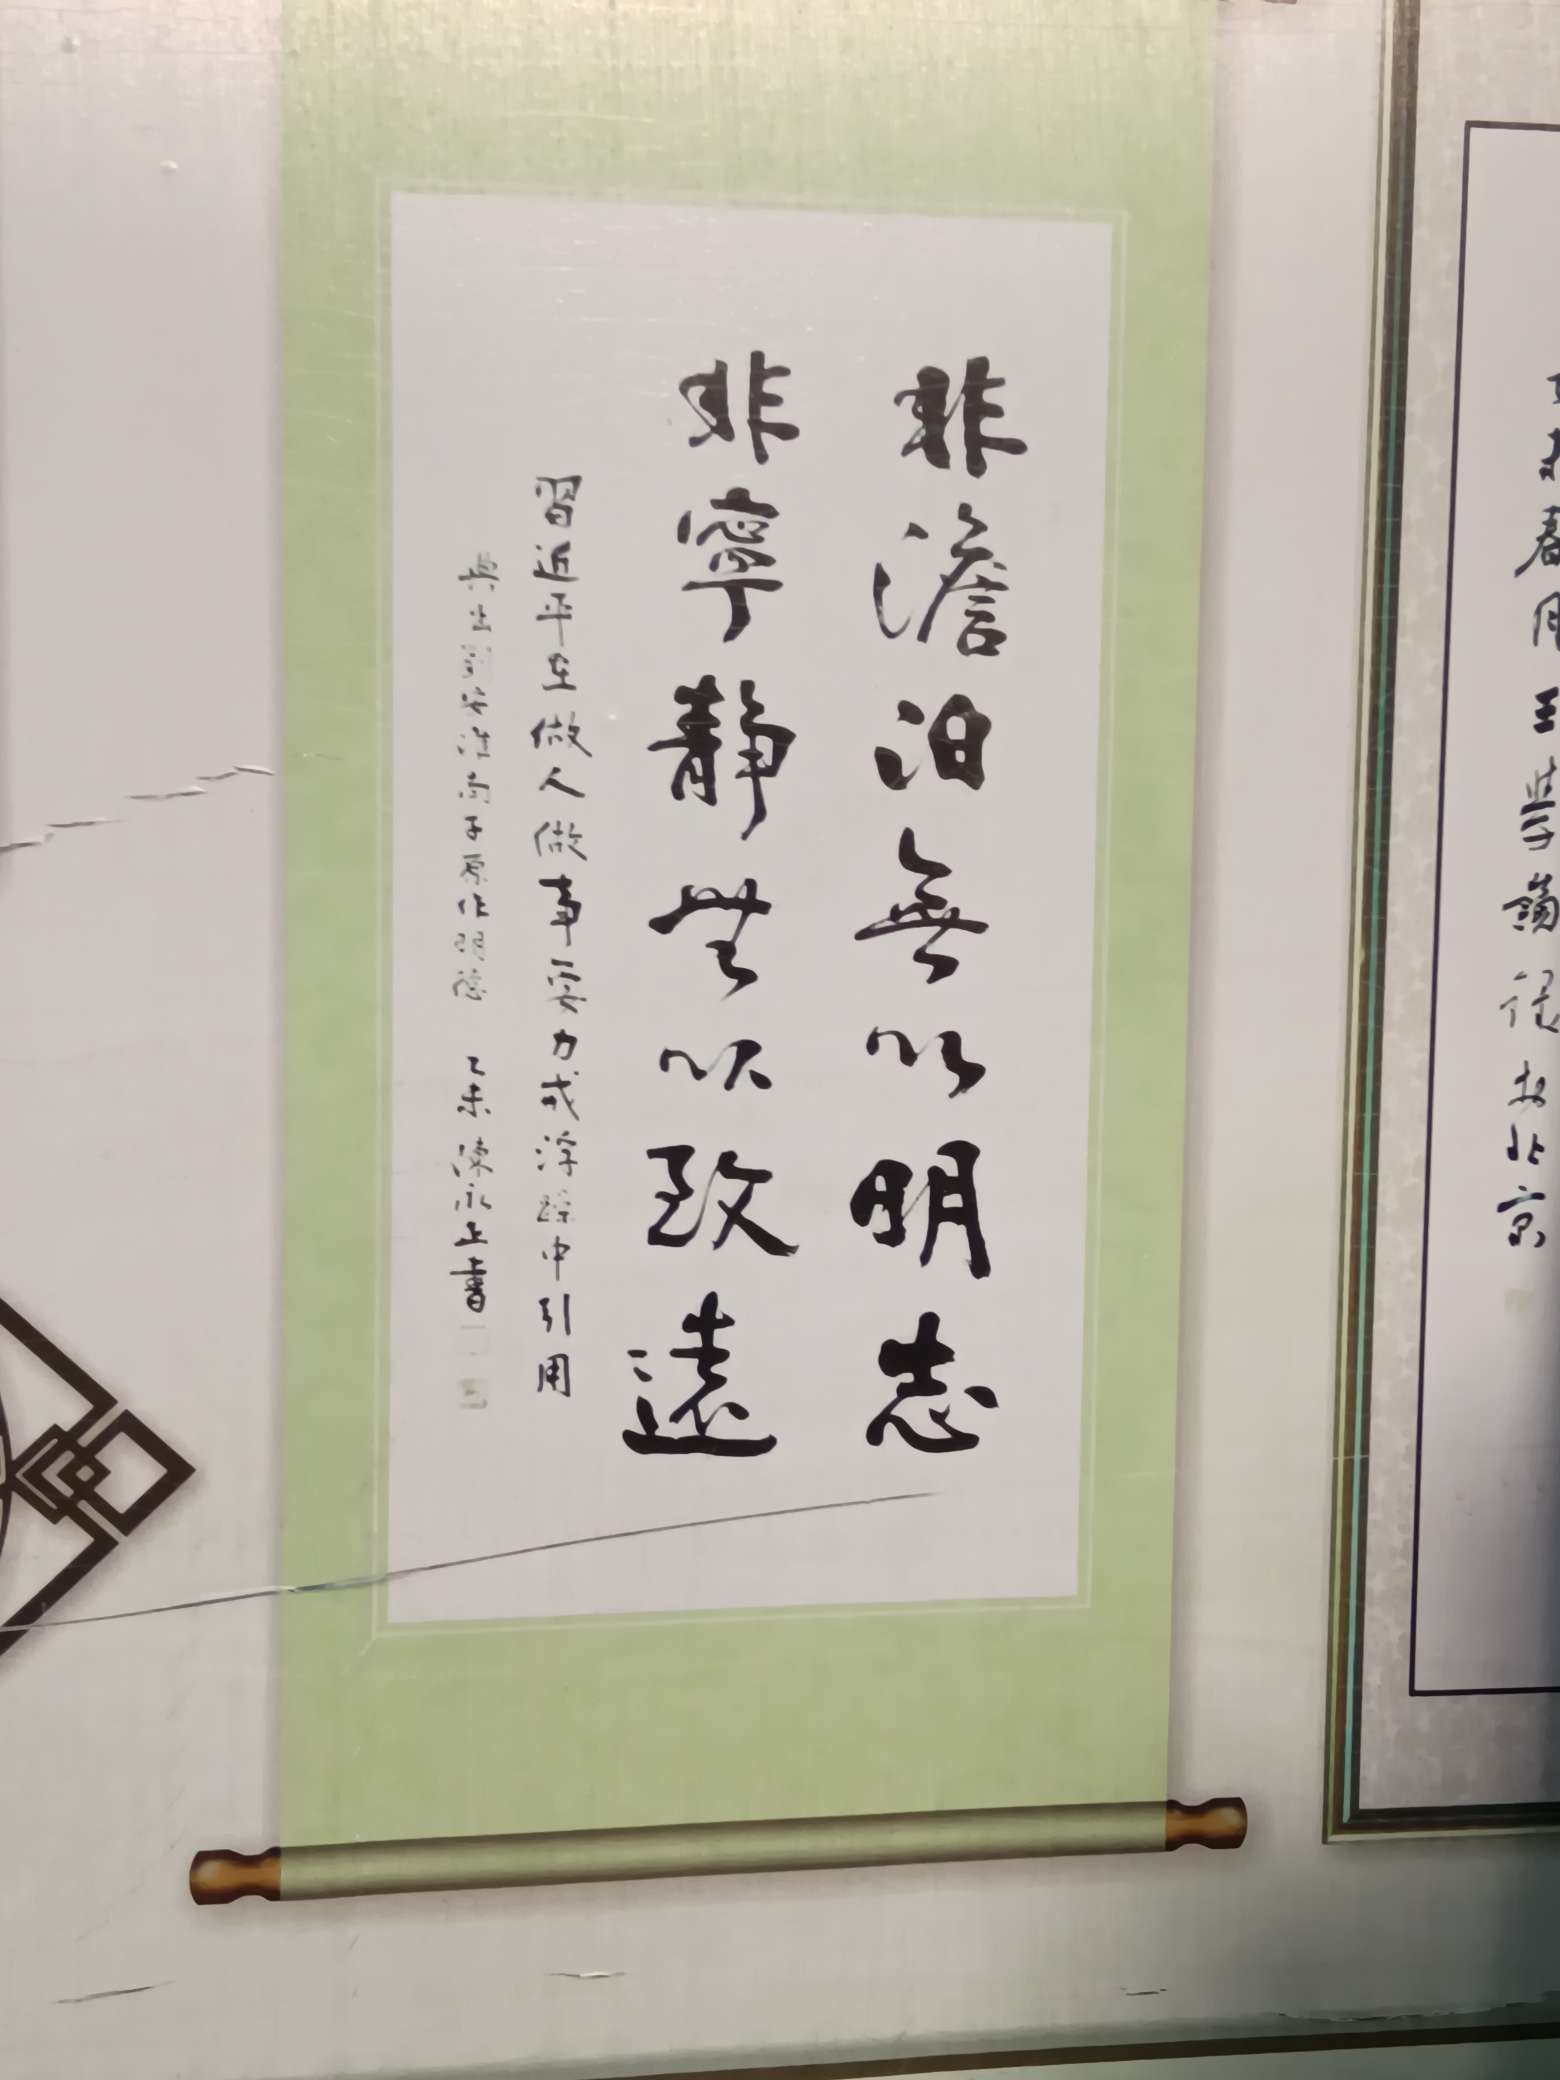 非澹泊無以明志
非寧靜無以致遠
習近平在做人做事要力戒浮躁中引用
典出劉安淮南子原作明德 乙未 陳永正書
春月王學嶺 於北京